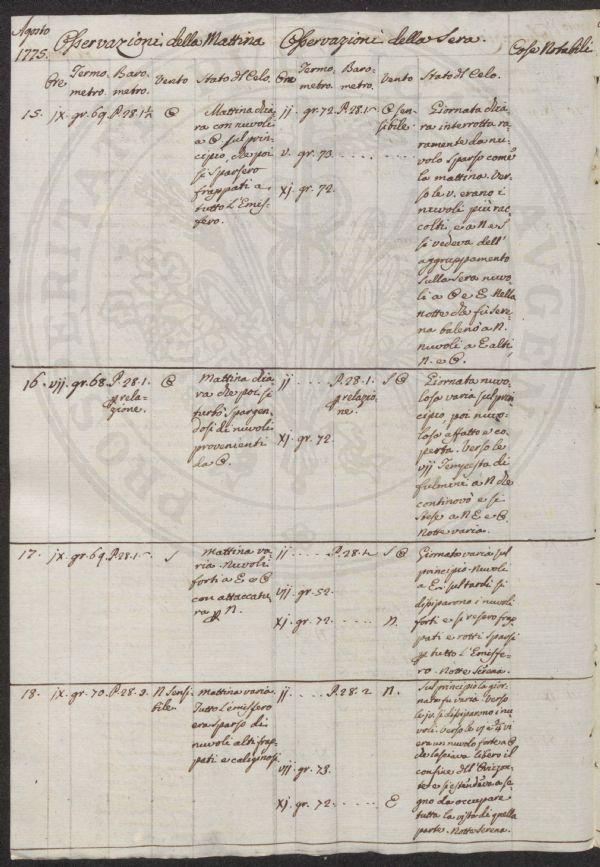 Agosto
1775. Osservazioni della Mattina Osservazioni della Sera. Cose Notabili
Ore Termo- Baro- Vento Stato del Celo. Ore Termo- Baro- Vento Stato del Celo.
metro. metro. metro. metro.
15. jx. gr. 69. P. 28. 1½ O Mattina chia-
ra con nuvoli
a O sul prin-
cipio, che poi
si sparsero
frappati a
tutto l'Emis-
fero.
ij. gr. 72. P. 28. 1 O sen-
sibile.
v. gr. 73.
xj. gr. 72.
Giornata chia-
ra interrotta ra-
ramente da nu-
volo sparso come
la mattina. Ver-
so le v. erano i
nuvoli più rac-
colti, e a N e S
si vedeva dell'
aggruppamento
sulla Sera nuvo-
li a O e E. Nella
notte che fù sere-
na balenò a N.
nuvoli a E alti,
N. e O.
16. vij. gr. 68. P. 28. 1. O
p rela-
zione.
Mattina chia-
ra che poi si
turbò spargen-
dosi di nuvoli
provenienti
da O.
ij P. 28. 1. S O
p relazio-
ne.
xj. gr. 72.
Giornata nuvo-
losa varia sul prin-
cipio, poi nuvo-
losa affatto e co-
perta. Verso le
vij Tempesta di
fulmini a N che
continovò e si
stese a N E e O.
Notte varia.
17. jx. gr. 69. P. 28. 1 S
Mattina va-
ria. Nuvoli
forti a E e O
con attaccatu-
ra p N.
ij P. 28. S O
vij. gr. 52.
xj. gr. 72. N.
Giornata varia sul
principio. Nuvoli
a E. sul tardi si
dissiparono i nuvoli
forti e si resero frap-
pati e rotti sparsi
p tutto l'Emisfe-
ro. Notte Serena.
18. jx. gr. 70. P. 28. 2. N Sensi-
bile.
Mattina varia.
Tutto l'emisfero
era sparso di
nuvoli alti frap-
pati e caliginosi.
ij. P. 28. 2 N.
vij. gr. 73.
xj. gr. 72. E
Sul principio la gior-
nata fu varia. Verso
le jv. si dissiparono i nu-
voli. Verso le vi
era un nuvolo forte a O
che lasciava libero il
confine dell'Orizzon-
te e si estendeva a se-
gno da occupare
tutta la vista di quella
parte. Notte Serena.